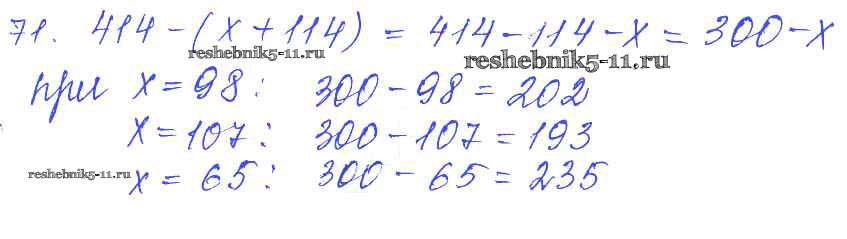 71. 414 - (x + 114) = 414 - 114 - x = 300 - x
reshebnik5-11.ru
reshebnik5-11.ru
при x = 98 : 300 - 98 = 202
x = 107 : 300 - 107 = 193
reshebnik5-11.ru
x = 65 : 300 - 65 = 235